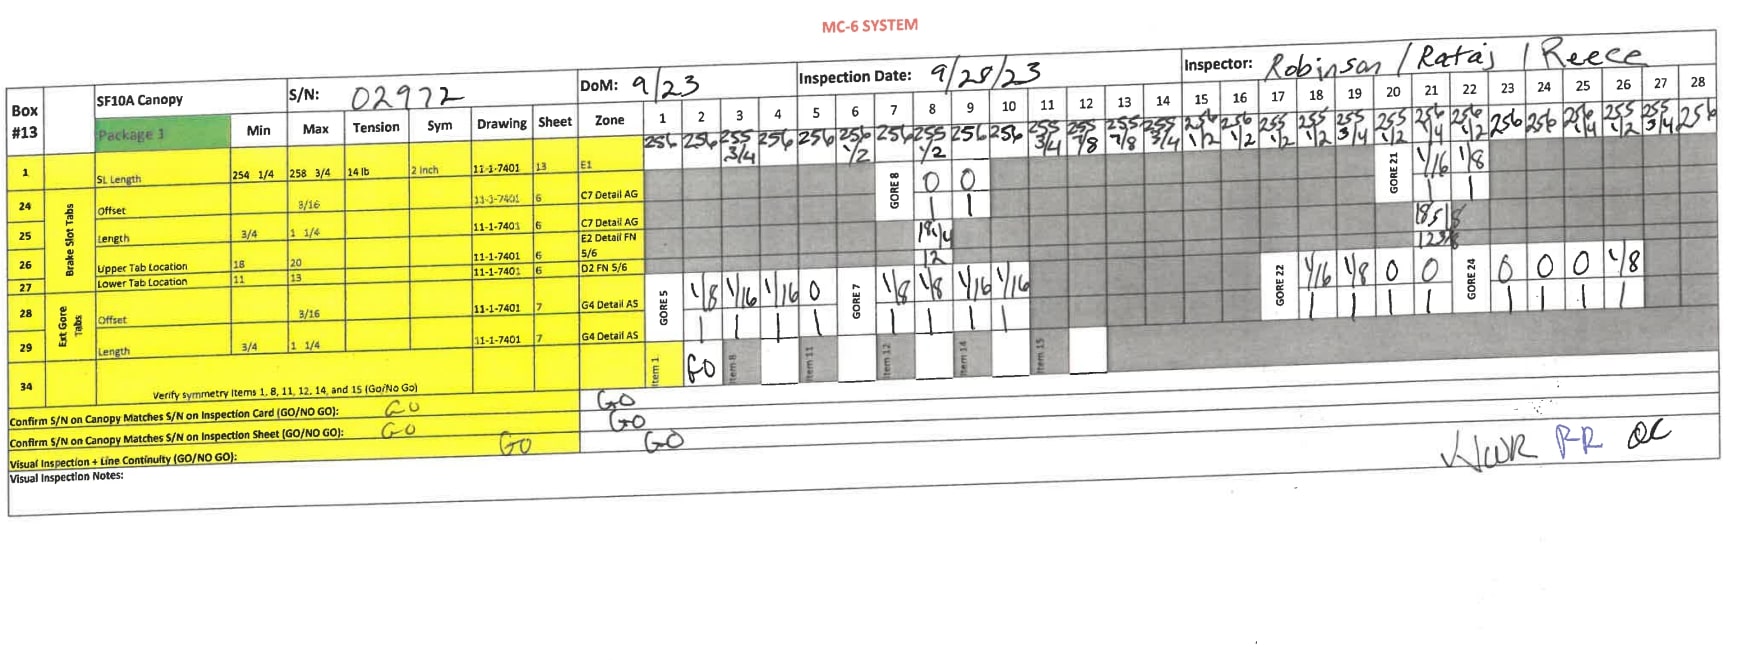 MC-6 SYSTEM
Box #13 SF10A Canopy S/N: 02972 DoM: 9/23 Inspection Date: 9/28/23 Inspector: Robinson / Rataj / Reece
Package 1 Min Max Tension Sym Drawing Sheet Zone 1 2 3 4 5 6 7 8 9 10 11 12 13 14 15 16 17 18 19 20 21 22 23 24 25 26 27 28
1 SL Length 254 1/4 258 3/4 14 lb 2 Inch 11-1-7401 13 E1 256 256 255 3/4 256 256 256 1/2 256 255 1/2 256 256 255 3/4 255 7/8 255 7/8 255 3/4 256 1/2 256 1/2 255 1/2 255 1/2 255 3/4 255 1/2 256 1/4 256 1/2 256 256 256 1/4 255 1/2 255 3/4 256
Brake Slot Tabs
24 Offset 3/16 11-1-7401 6 C7 Detail AG GORE 8 0 0 GORE 21 1/16 1/8
25 Length 3/4 1 1/4 11-1-7401 6 C7 Detail AG 1 1 1 1
26 Upper Tab Location 18 20 11-1-7401 6 E2 Detail FN 5/6 18 1/4 18 5/8
27 Lower Tab Location 11 13 11-1-7401 6 D2 FN 5/6 12 12 3/8
Ext Gore Tabs
28 Offset 3/16 11-1-7401 7 G4 Detail AS GORE 5 1/8 1/16 1/16 0 GORE 7 1/8 1/8 1/16 1/16 GORE 22 1/16 1/8 0 0 GORE 24 0 0 0 1/8
29 Length 3/4 1 1/4 11-1-7401 7 G4 Detail AS 1 1 1 1 1 1 1 1 1 1 1 1 1 1 1 1
34 Verify symmetry Items 1, 8, 11, 12, 14, and 15 (Go/No Go) Item 1 GO Item 8 Item 11 Item 12 Item 14 Item 15
Confirm S/N on Canopy Matches S/N on Inspection Card (GO/NO GO): GO GO
Confirm S/N on Canopy Matches S/N on Inspection Sheet (GO/NO GO): GO GO
Visual Inspection + Line Continuity (GO/NO GO): GO GO
Visual Inspection Notes:
RR